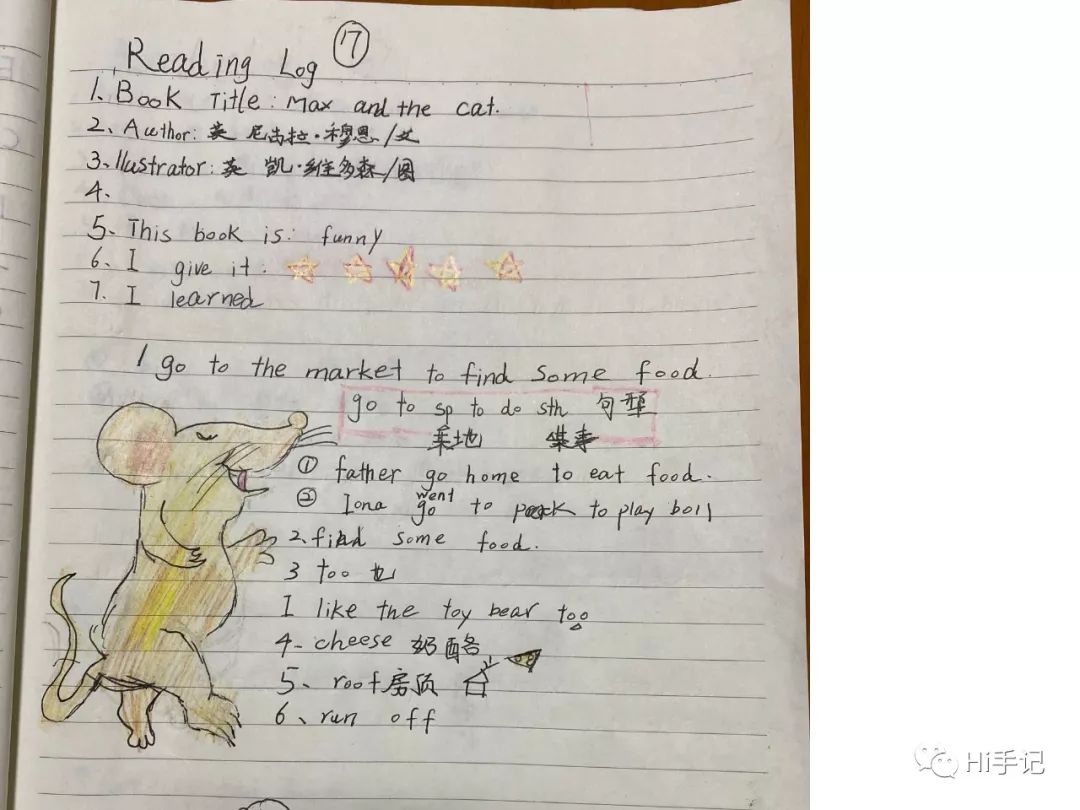 Reading Log 17
1. Book Title: Max and the cat.
2、Author: 英 尼古拉·穆恩/文
3、Ilustrator: 英 凯·维多森/图
4、
5、This book is: funny
6. I give it:
7. I learned
1 go to the market to find some food.
go to sp to do sth 句型
某地 某事
① father go home to eat food.
② Iona go went to park to play boll
2. find some food.
3 too 也
I like the toy bear too
4- cheese 奶酪
5、roof 房顶
6、run off
Hi手记